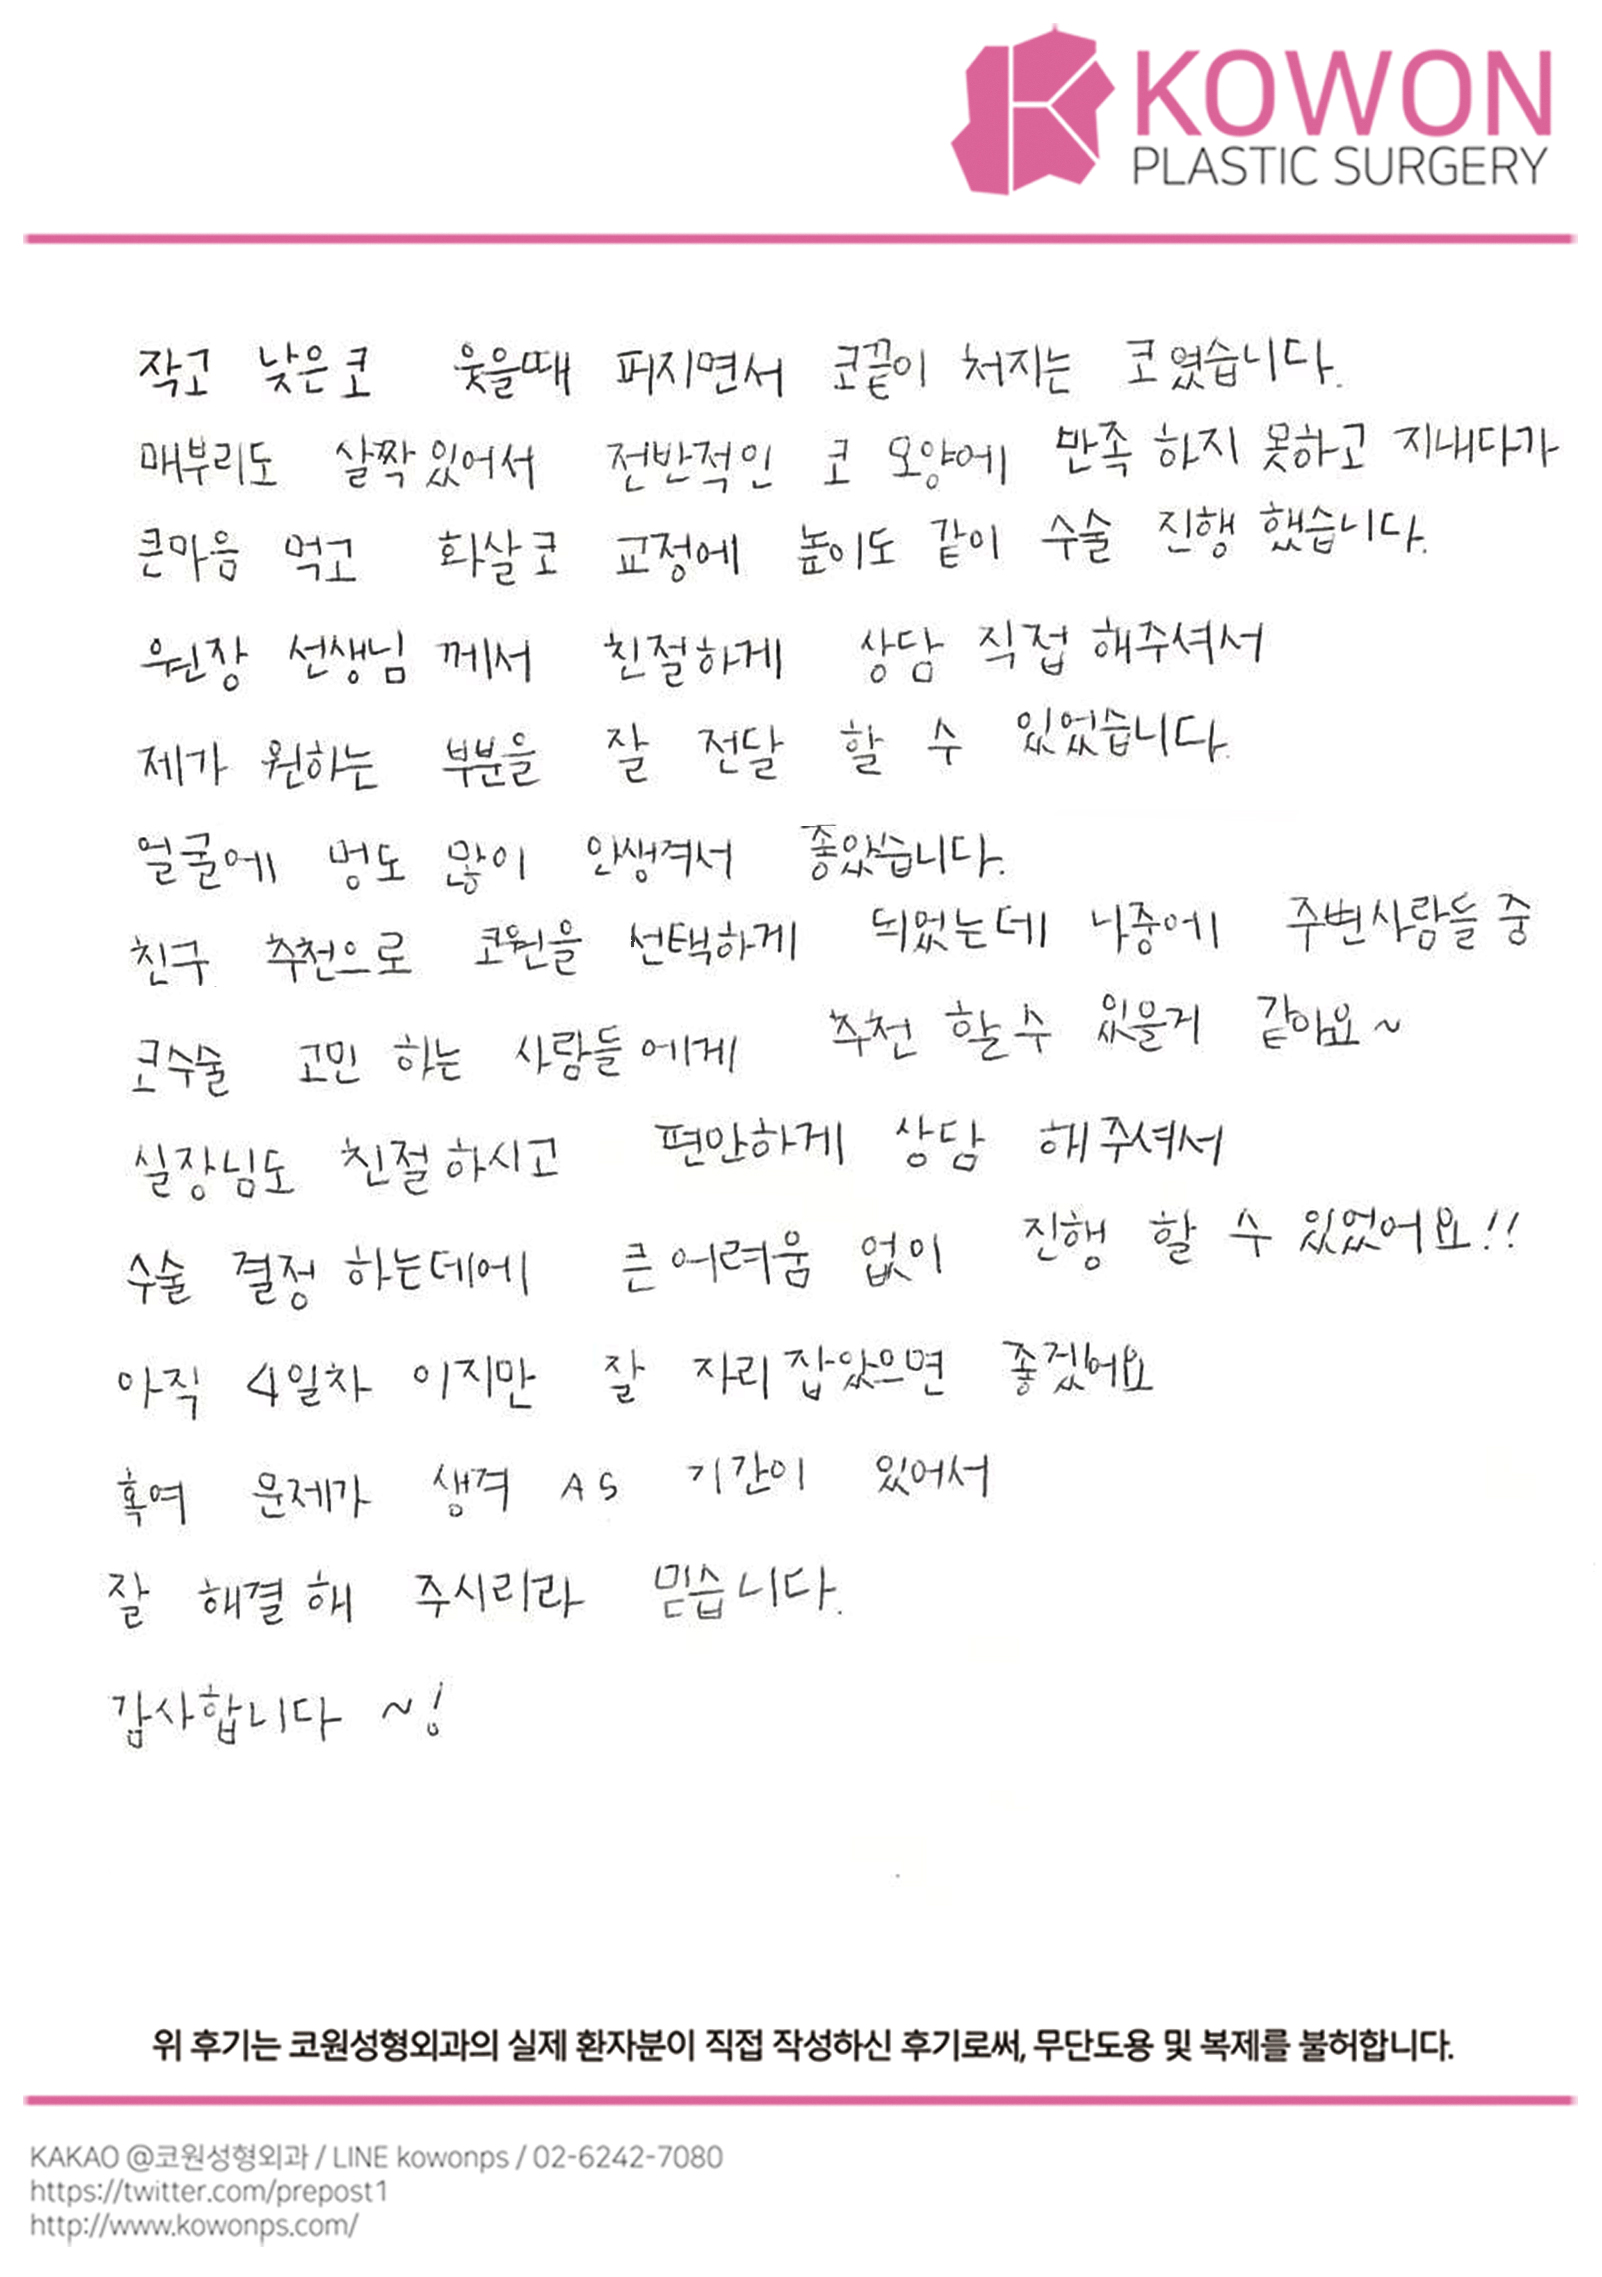 KOWON
PLASTIC SURGERY
작고 낮은코 웃을때 퍼지면서 코끝이 처지는 코였습니다.
매부리도 살짝있어서 전반적인 코 모양에 만족 하지 못하고 지내다가
큰마음 먹고 화살코 교정에 높이도 같이 수술 진행 했습니다.
원장 선생님 께서 친절하게 상담 직접 해주셔서
제가 원하는 부분을 잘 전달 할 수 있었습니다.
얼굴에 멍도 많이 안생겨서 좋았습니다.
친구 추천으로 코원을 선택하게 되었는데 나중에 주변사람들 중
코수술 고민 하는 사람들에게 추천 할수 있을거 같아요~
실장님도 친절하시고 편안하게 상담 해주셔서
수술 결정 하는데에 큰어려움 없이 진행 할 수 있었어요!!
아직 4일차 이지만 잘 자리잡았으면 좋겠어요
혹여 문제가 생겨 AS 기간이 있어서
잘 해결해 주시리라 믿습니다.
감사합니다 ~!
위 후기는 코원성형외과의 실제 환자분이 직접 작성하신 후기로써, 무단도용 및 복제를 불허합니다.
KAKAO @코원성형외과 / LINE kowonps / 02-6242-7080
https://twitter.com/prepost1
http://www.kowonps.com/